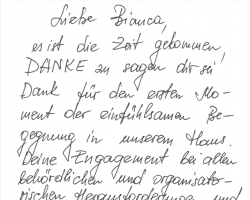 Liebe Bianca,
es ist die Zeit gekommen,
DANKE zu sagen dir sei
Dank für den ersten Mo-
ment der einfühlsamen Be-
gegnung in unserem Haus.
Deine Engagement bei allen
behördlichen und organisator-
ischen Herausforderungen und